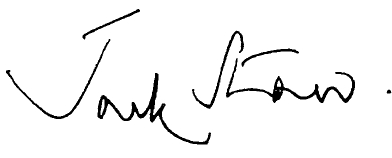 Jack Straw.